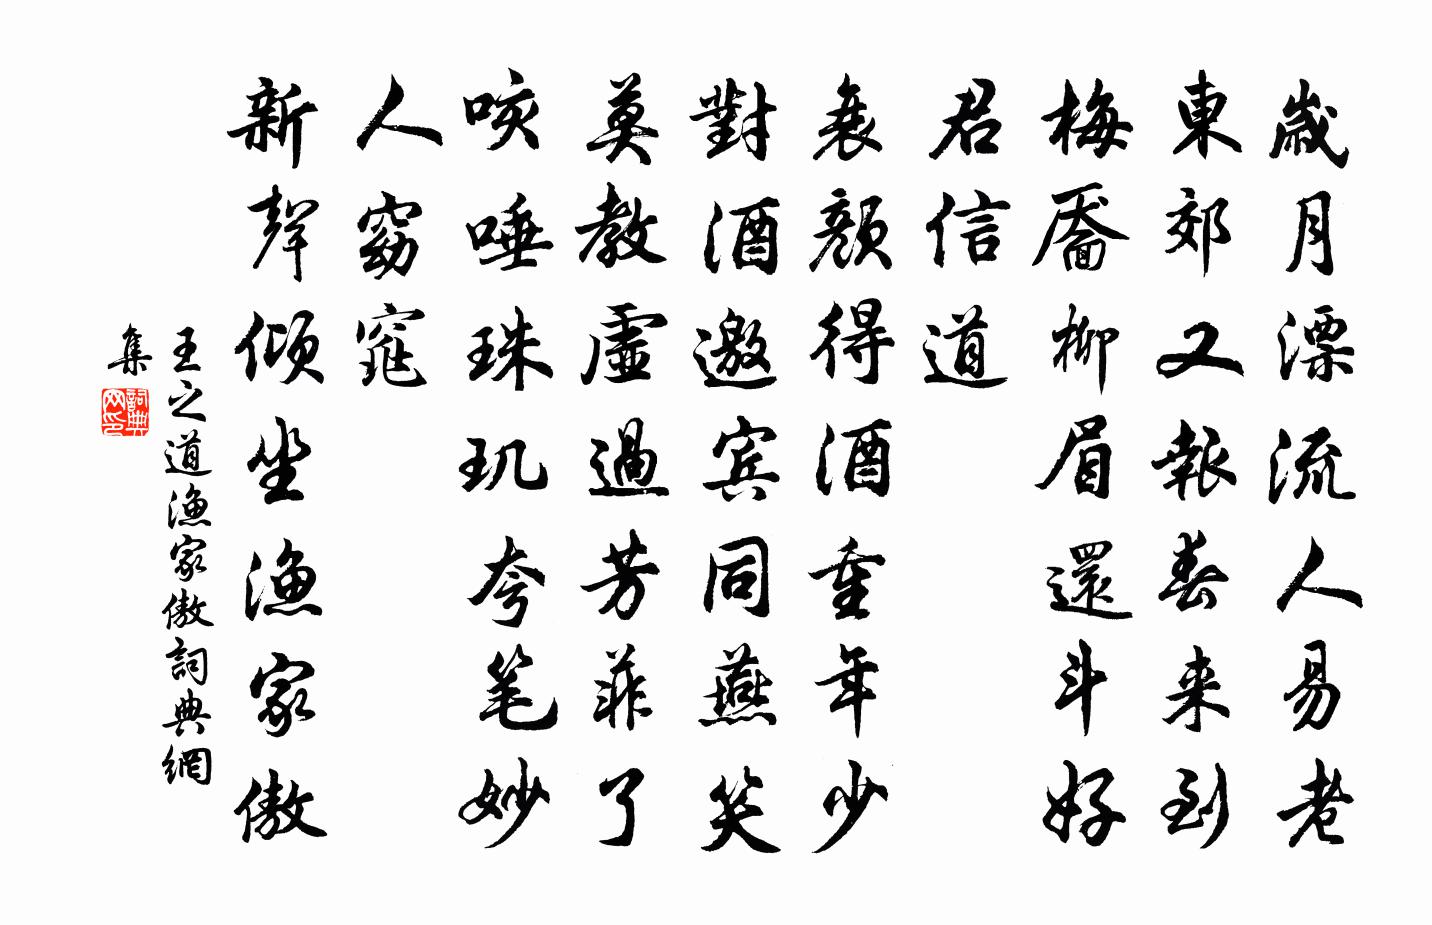 歲月漂流人易老
東郊又報春来到
梅靨柳眉還斗好
君信道
衰顏得酒重年少
對酒邀宾同燕笑
莫教虛過芳菲了
咳唾珠玑夸笔妙
人窈窕
新聲傾坐漁家傲
王之道漁家傲詞典網
集
詞典网印